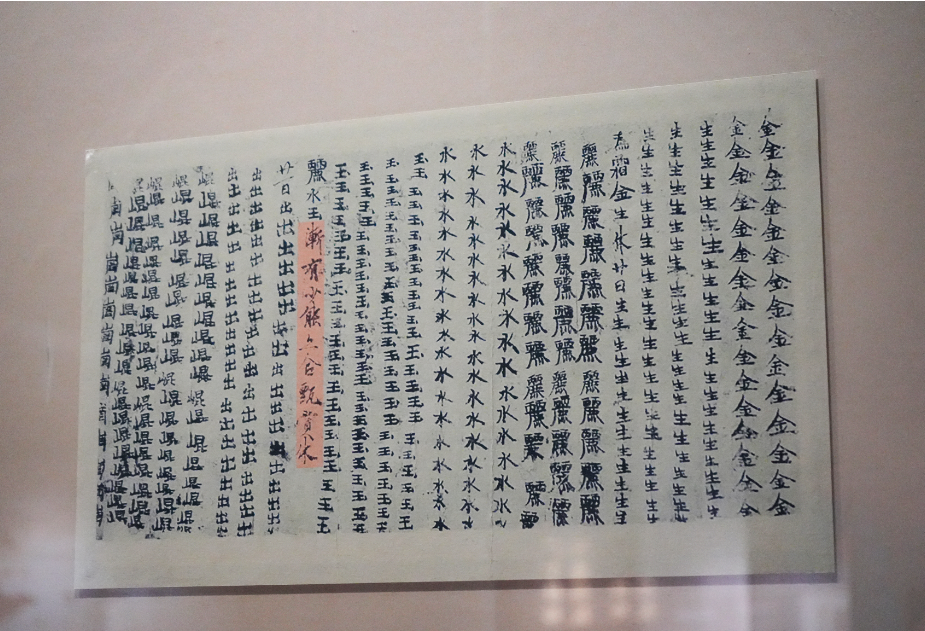 金金金金金金金金金金金金金金金
金金金金金金金金金金金金金金金金
生生生生生生生生生生生生生生生生生生生生
生生生生生生生生生生生生生生生生生生生生
生生生生生生生生生生生生生生生生生生生
為霜金生 廿日生生生生生生生生生生生生
麗麗麗麗麗麗麗麗麗麗麗麗
麗麗麗麗麗麗麗麗麗麗麗麗麗
麗麗麗麗麗麗麗麗麗麗麗麗麗
水水水水水水水水水水水水水水水水
水水水水水水水水水水水水水水水水
水水水水水水水水水水水水水水水水水
玉玉玉玉玉玉玉玉玉玉玉玉玉玉玉玉玉玉
玉玉玉玉玉玉玉玉玉玉玉玉玉玉玉玉玉玉玉玉
玉玉玉玉玉玉玉玉玉玉玉玉玉玉玉玉玉玉玉玉
玉玉玉玉玉玉玉玉玉玉玉玉玉玉玉玉玉玉玉
麗水玉漸有少能亦合甄賞休
廿日出出出出出出出出出出出出出
出出出出出出出出出出出出出出出出
出出出出出出出出出出出出出出出出
崐崐崐崐崐崐崐崐崐崐崐崐崐崐
崐崐崐崐崐崐崐崐崐崐崐崐崐
崐崐崐崐崐崐崐崐崐崐崐崐崐崐崐
崐崐崐崐崐崐崐崐崐崐崐崐崐崐崐
崗崗崗崗崗崗崗崗崗崗崗崗